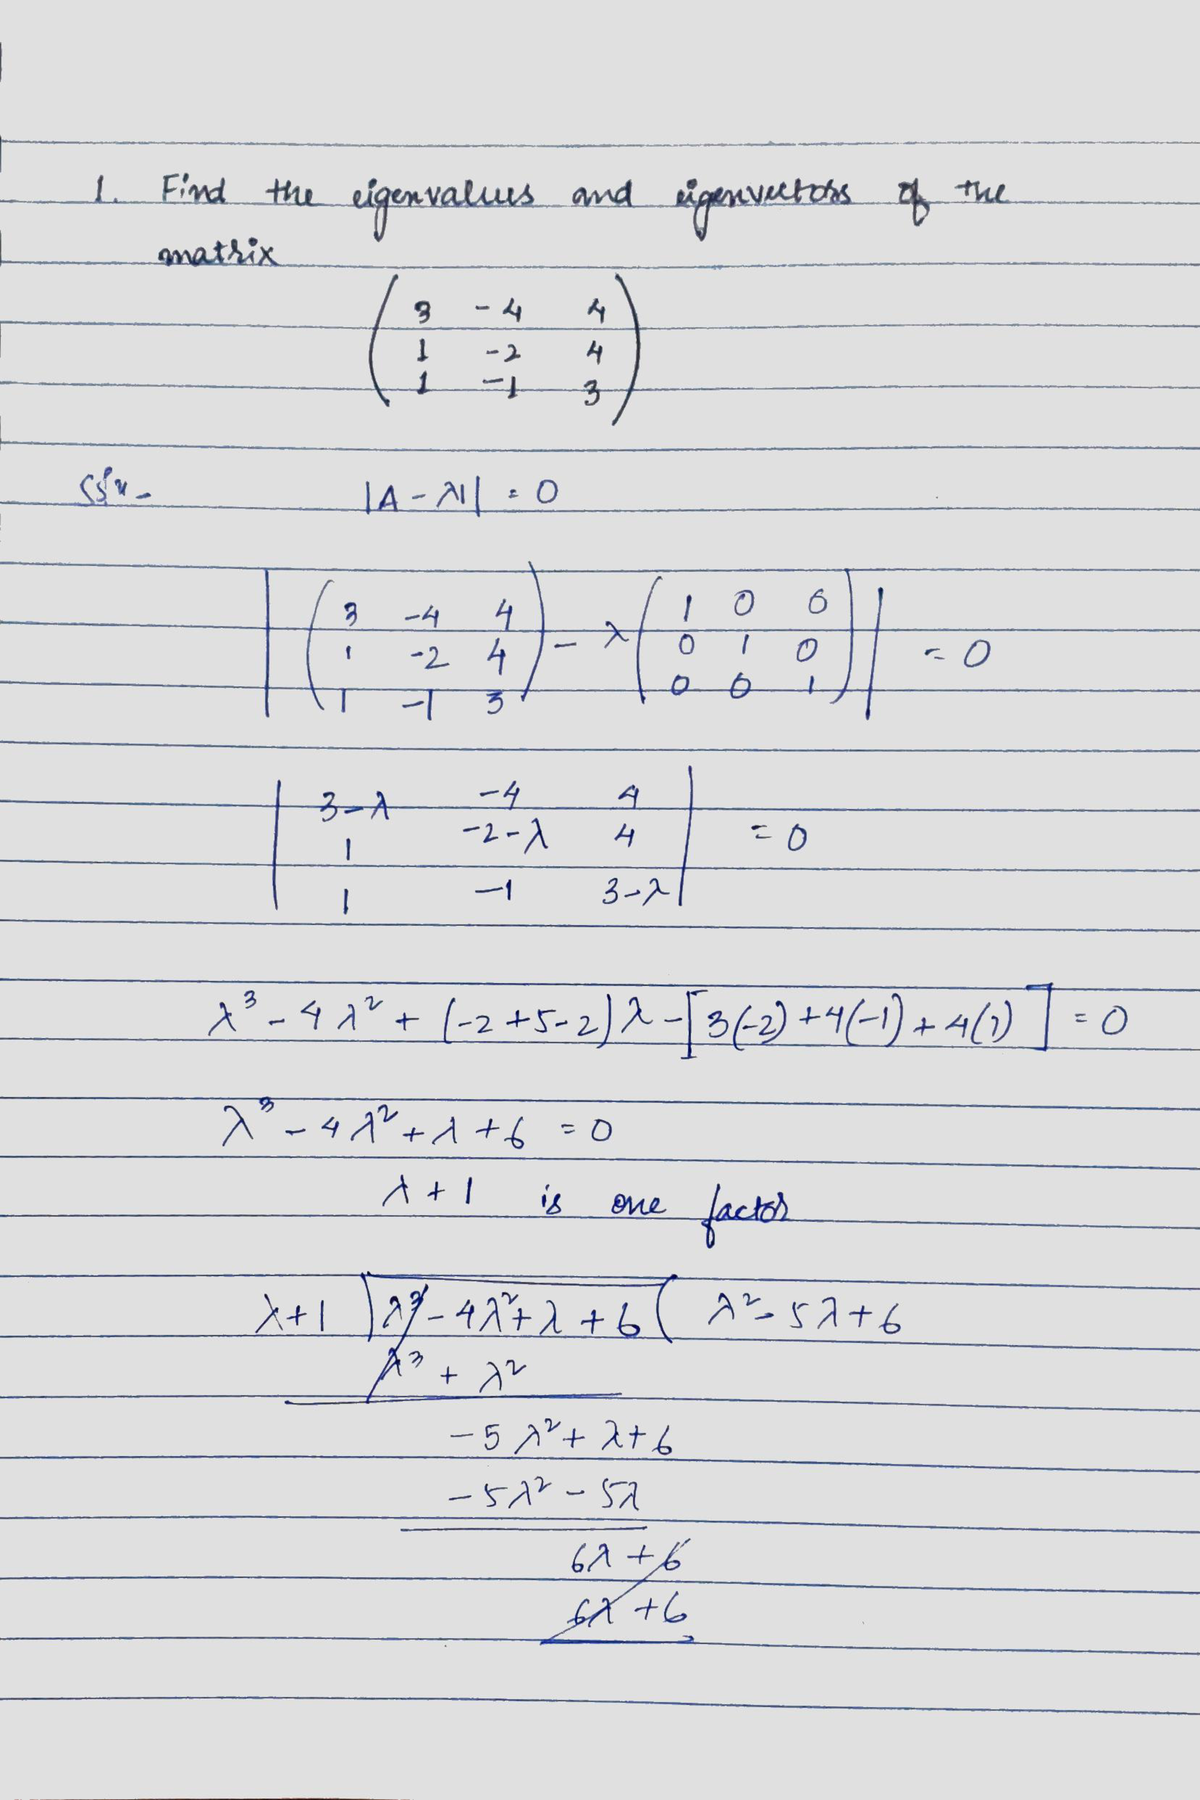 1. Find the eigenvalues and eigenvectors of the
matrix
( 3 -4 4
1 -2 4
1 -1 3 )
Solⁿ- |A - λI| = 0
| ( 3 -4 4
1 -2 4
1 -1 3 ) - λ ( 1 0 0
0 1 0
0 0 1 ) | = 0
| 3-λ -4 4
1 -2-λ 4
1 -1 3-λ | = 0
λ³ - 4λ² + (-2+5-2)λ - [3(-2)+4(-1)+4(1)] = 0
λ³ - 4λ² + λ + 6 = 0
λ+1 is one factor
λ+1 ) λ³ - 4λ² + λ + 6 ( λ² - 5λ + 6
λ³ + λ²
-5λ² + λ + 6
-5λ² - 5λ
6λ + 6
6λ + 6